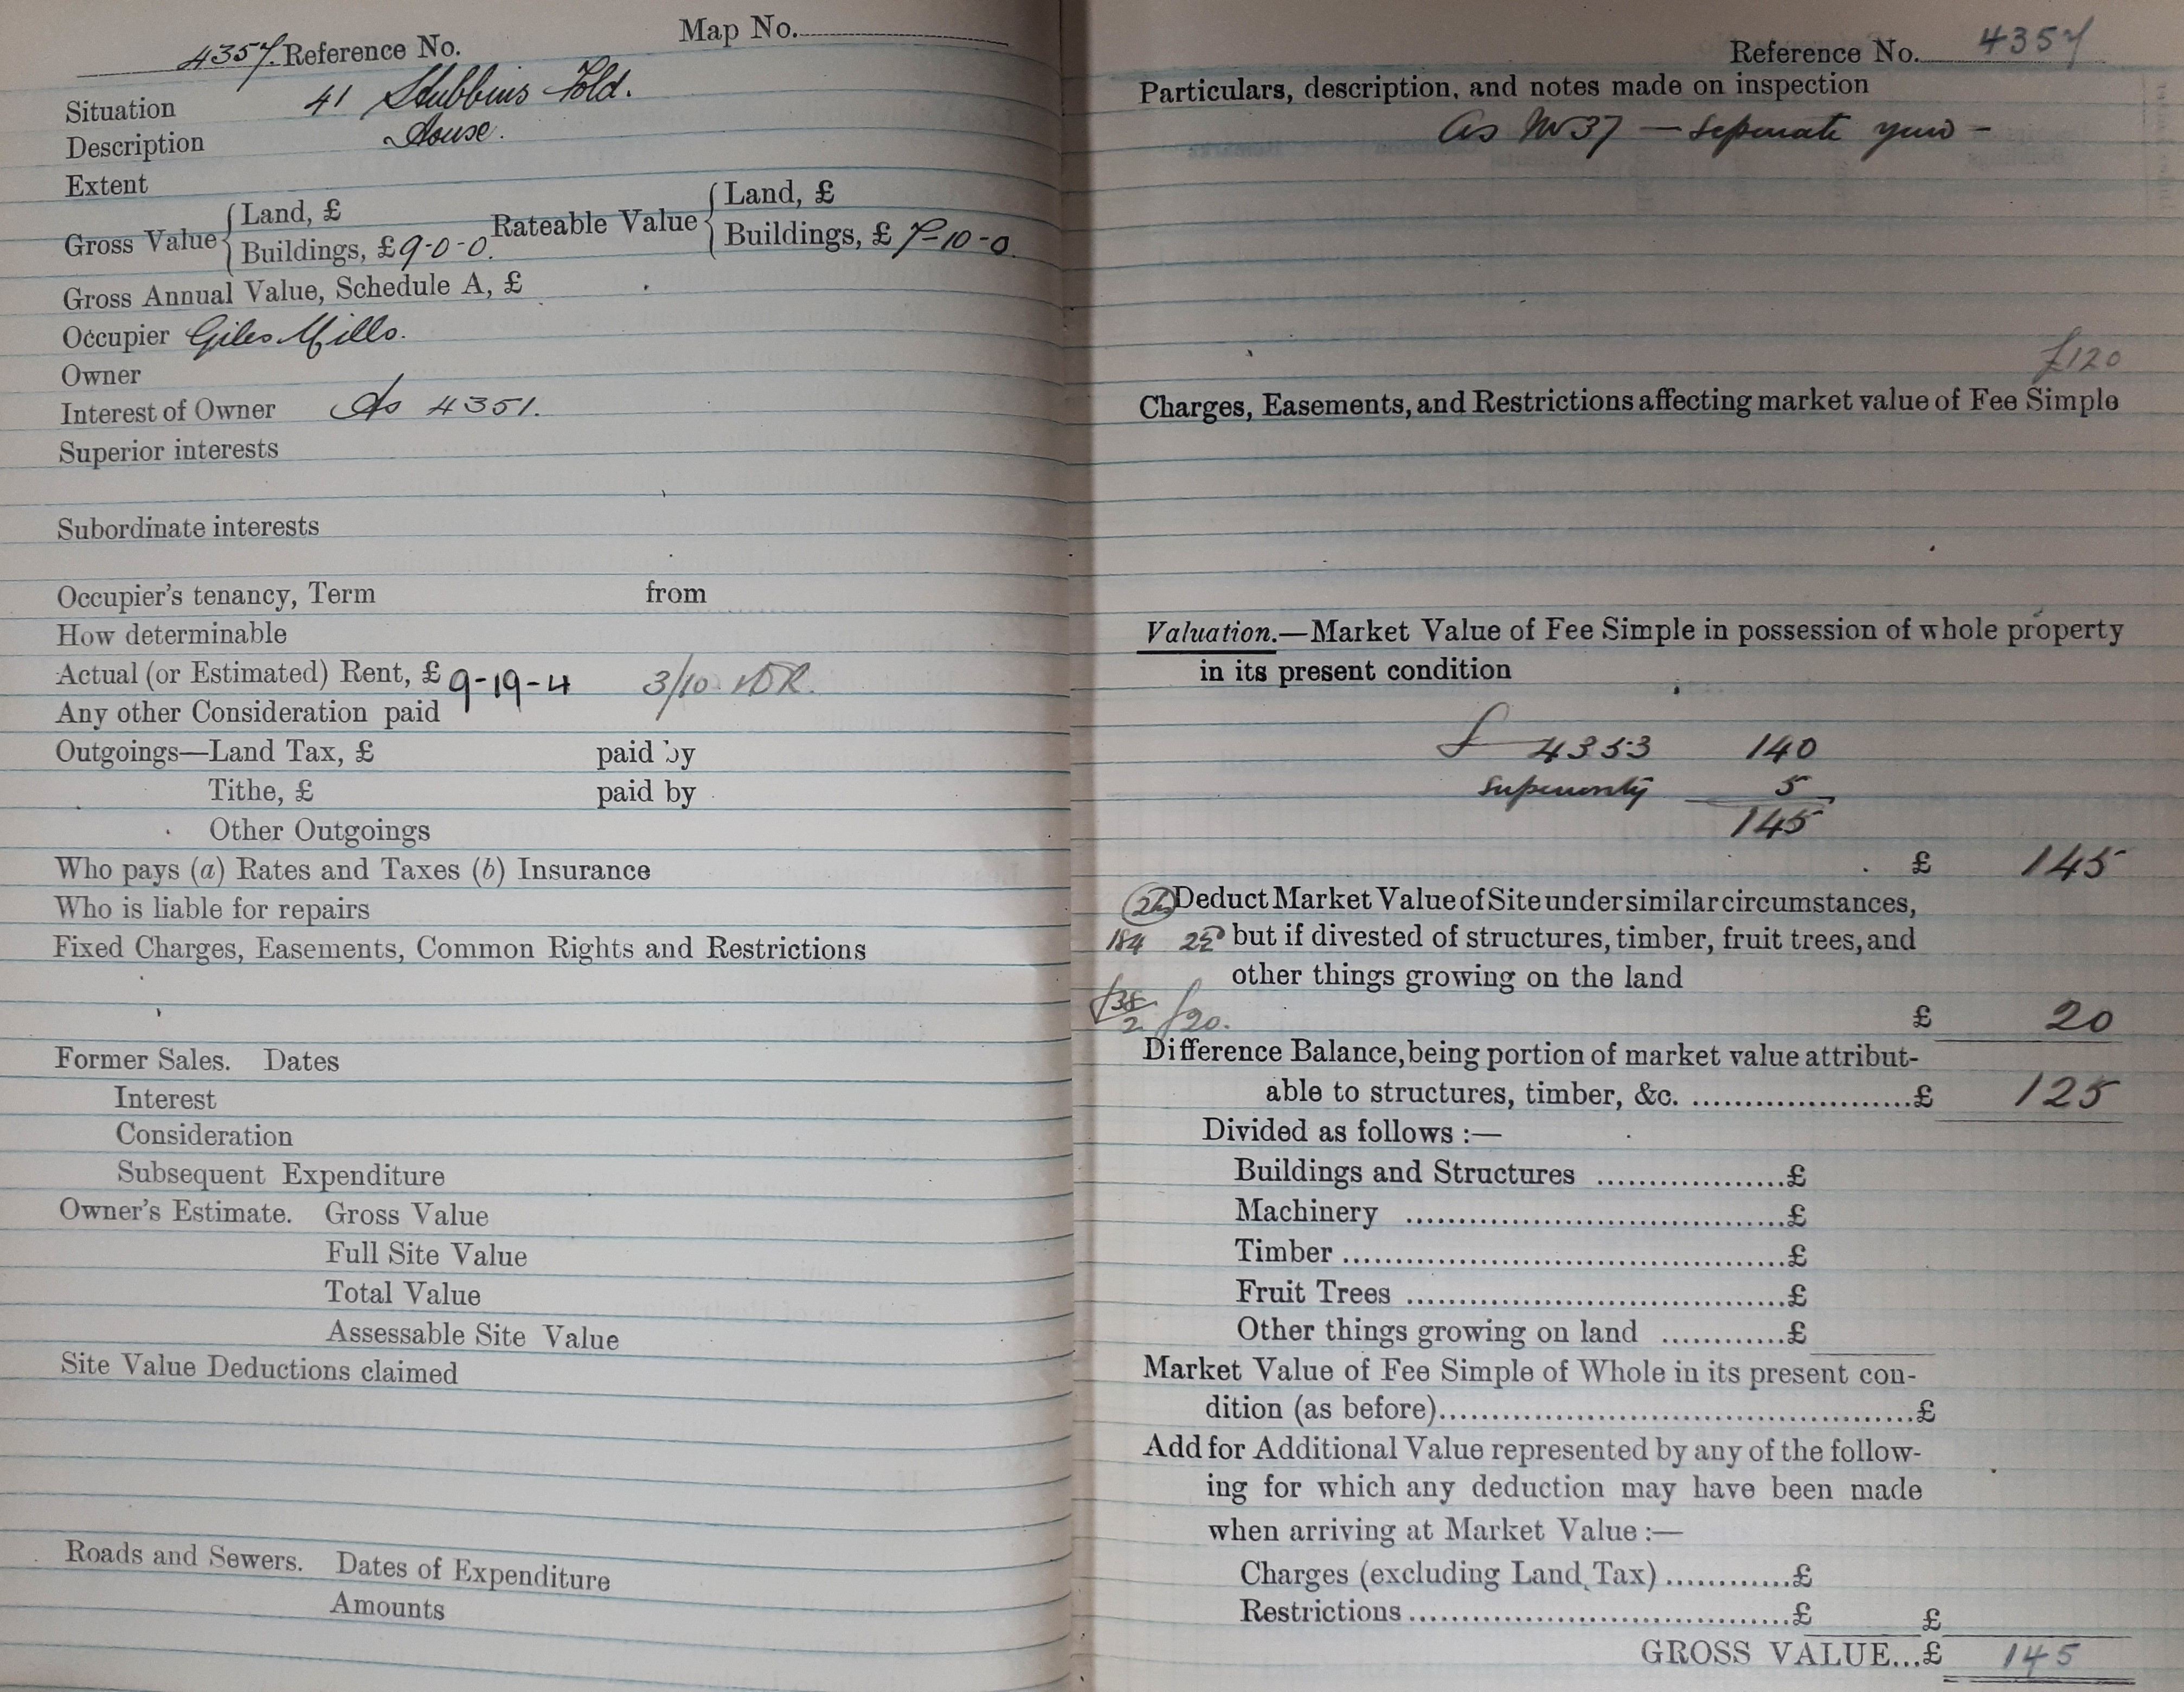 4357. Reference No. Map No.
Situation 41 Stubbins Fold.
Description House.
Extent
Gross Value { Land, £
Buildings, £ 9-0-0. Rateable Value { Land, £
Buildings, £ 7-10-0.
Gross Annual Value, Schedule A, £
Occupier Giles Mills.
Owner
Interest of Owner As 4351.
Superior interests
Subordinate interests
Occupier's tenancy, Term from
How determinable
Actual (or Estimated) Rent, £ 9-19-4 3/10
Any other Consideration paid
Outgoings—Land Tax, £ paid by
Tithe, £ paid by
Other Outgoings
Who pays (a) Rates and Taxes (b) Insurance
Who is liable for repairs
Fixed Charges, Easements, Common Rights and Restrictions
Former Sales. Dates
Interest
Consideration
Subsequent Expenditure
Owner's Estimate. Gross Value
Full Site Value
Total Value
Assessable Site Value
Site Value Deductions claimed
Roads and Sewers. Dates of Expenditure
Amounts
Reference No. 4357
Particulars, description, and notes made on inspection
As No 37 — Separate yard —
£120
Charges, Easements, and Restrictions affecting market value of Fee Simple
Valuation.—Market Value of Fee Simple in possession of whole property
in its present condition
£ 4353 140
Superiority 5
145
£ 145
Deduct Market Value of Site under similar circumstances,
but if divested of structures, timber, fruit trees, and
other things growing on the land
£20. £ 20
Difference Balance, being portion of market value attribut-
able to structures, timber, &c. ......................£ 125
Divided as follows :—
Buildings and Structures ...................£
Machinery .......................................£
Timber .............................................£
Fruit Trees .......................................£
Other things growing on land ............£
Market Value of Fee Simple of Whole in its present con-
dition (as before)................................................£
Add for Additional Value represented by any of the follow-
ing for which any deduction may have been made
when arriving at Market Value :—
Charges (excluding Land Tax) ............£
Restrictions ......................................£ £
GROSS VALUE...£ 145